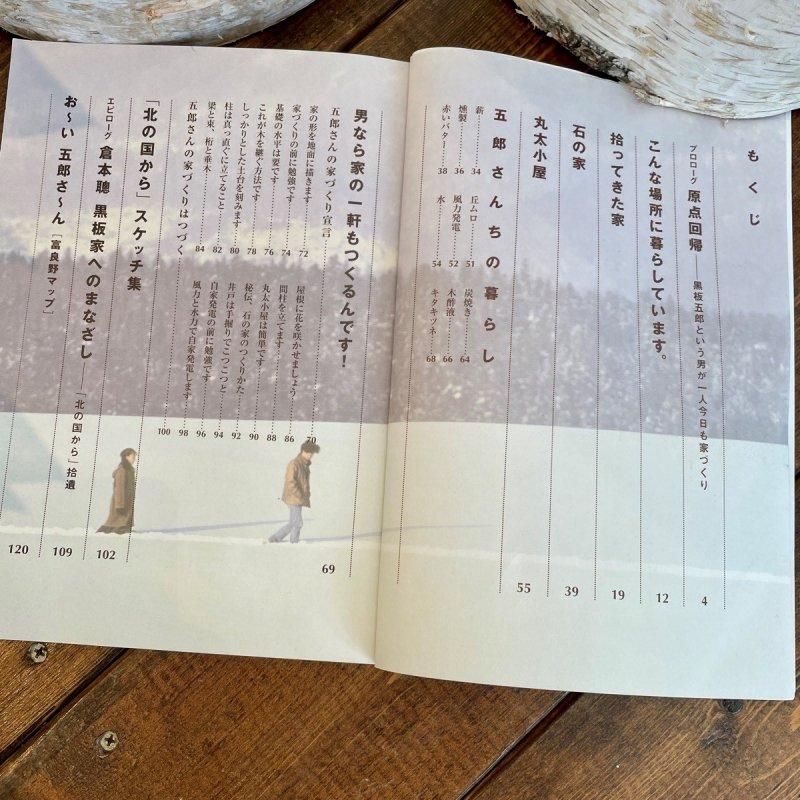 もくじ
プロローグ 原点回帰――黒板五郎という男が一人今日も家づくり 4
こんな場所に暮らしています。 12
拾ってきた家 19
石の家 39
丸太小屋 55
五郎さんちの暮らし
薪 34
燻製 36
赤いバター 38
丘ムロ 51
風力発電 52
水 54
炭焼き 64
木酢液 66
キタキツネ 68
男なら家の一軒もつくるんです! 69
五郎さんの家づくり宣言 70
家の形を地面に描きます 72
家づくりの前に勉強です 74
基礎の水平は要です 76
これが木を継ぐ方法です 78
しっかりとした土台を刻みます 80
柱は真っ直ぐに立てること 82
梁と束、桁と垂木 84
屋根に花を咲かせましょう 86
間柱を立てます 88
丸太小屋は簡単です 90
秘伝、石の家のつくりかた 92
井戸は手掘りでこつこつと 94
自家発電の前に勉強です 96
風力と水力で自家発電します 98
五郎さんの家づくりはつづく 100
「北の国から」スケッチ集 102
エピローグ 倉本聰 黒板家へのまなざし――「北の国から」拾遺 109
お〜い 五郎さ〜ん [富良野マップ] 120